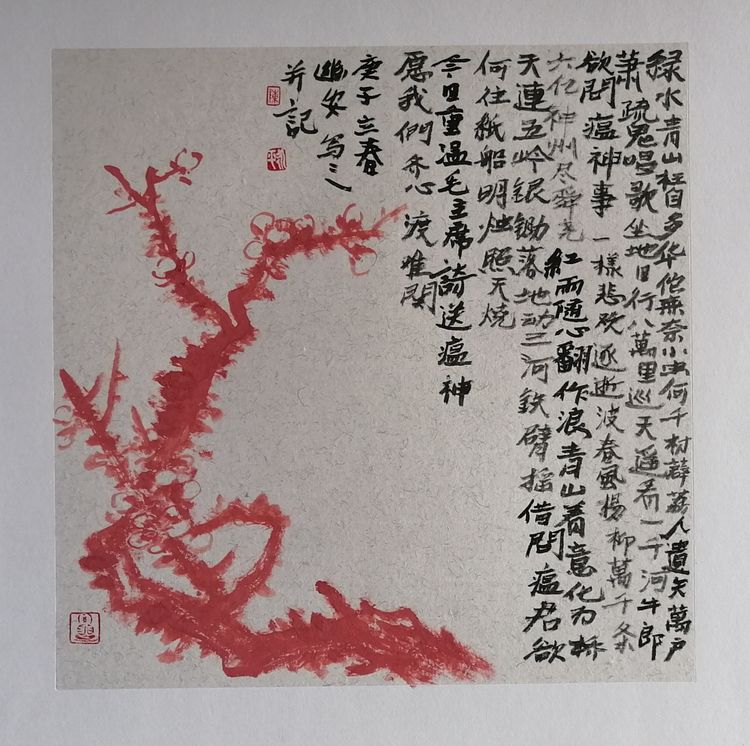 綠水青山枉自多华佗無奈小虫何千村薜荔人遺矢萬戶
萧疏鬼唱歌坐地日行八萬里巡天遥看一千河牛郎
欲問瘟神事一樣悲欢逐逝波春風楊柳萬千条
六亿神州尽舜尧紅雨隨心翻作浪青山着意化为桥
天連五岭銀锄落地动三河鉄臂摇借問瘟君欲
何往紙船明烛照天烧
今日重温毛主席詩送瘟神
愿我們齐心渡难関
庚子立春
安写之
并記